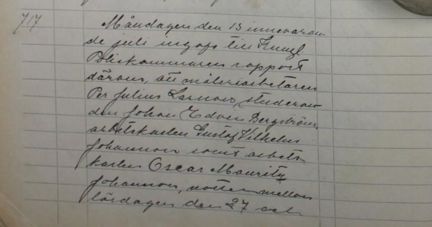 717
Måndagen den 13 innevaran
de juli ingafs till Kungl
Poliskammaren rapport
därom, att måleriarbetaren
Per Julius Larsson, studeran
den Johan Edvin Bergström,
arbetskarlen Gustaf Vilhelm
Johansson samt arbets
karlen Oscar Mauritz
Johansson, natten mellan
lördagen den 27 och